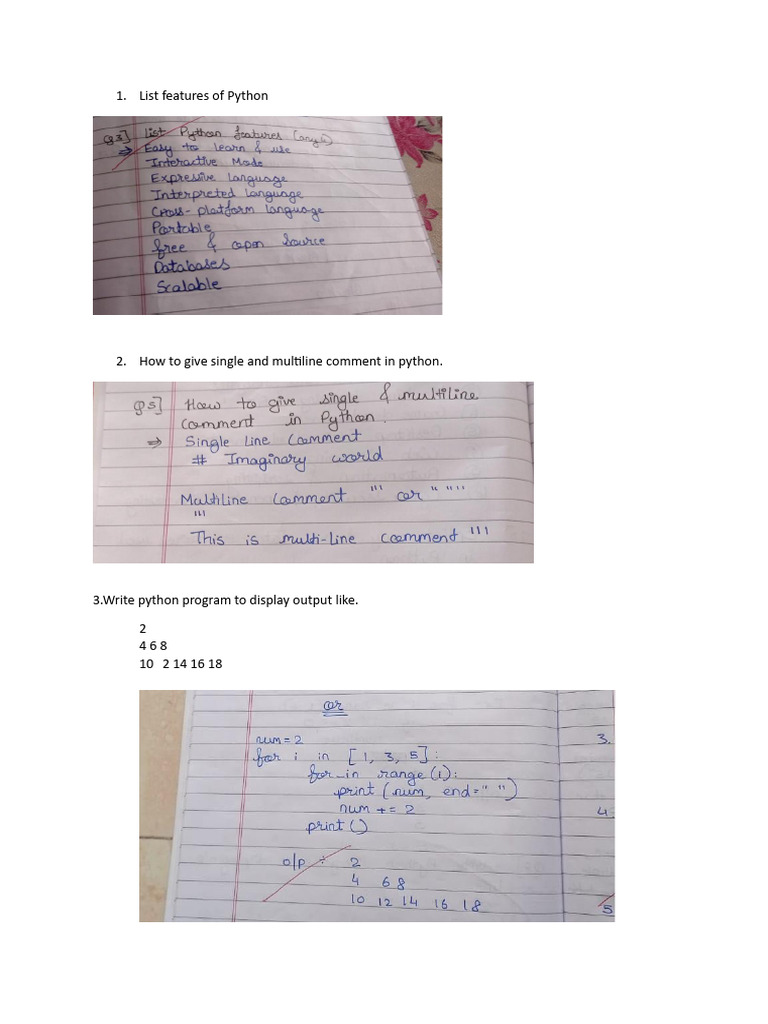 1. List features of Python
Q3] List Python features (any 4)
⇒ Easy to learn & use
Interactive Mode
Expressive Language
Interpreted Language
Cross-platform language
Portable
free & open source
Databases
Scalable
2. How to give single and multiline comment in python.
Q5] How to give single & multiline
comment in Python.
⇒ Single Line Comment
# Imaginary world
Multiline Comment ''' or " " " "
'''
This is multi-line comment '''
3.Write python program to display output like.
2
4 6 8
10 2 14 16 18
or
num = 2
for i in [1, 3, 5]:
for_in range(i):
print (num, end=" ")
num += 2
print()
3.
4.
o/p ÷ 2
4 6 8
10 12 14 16 18
5